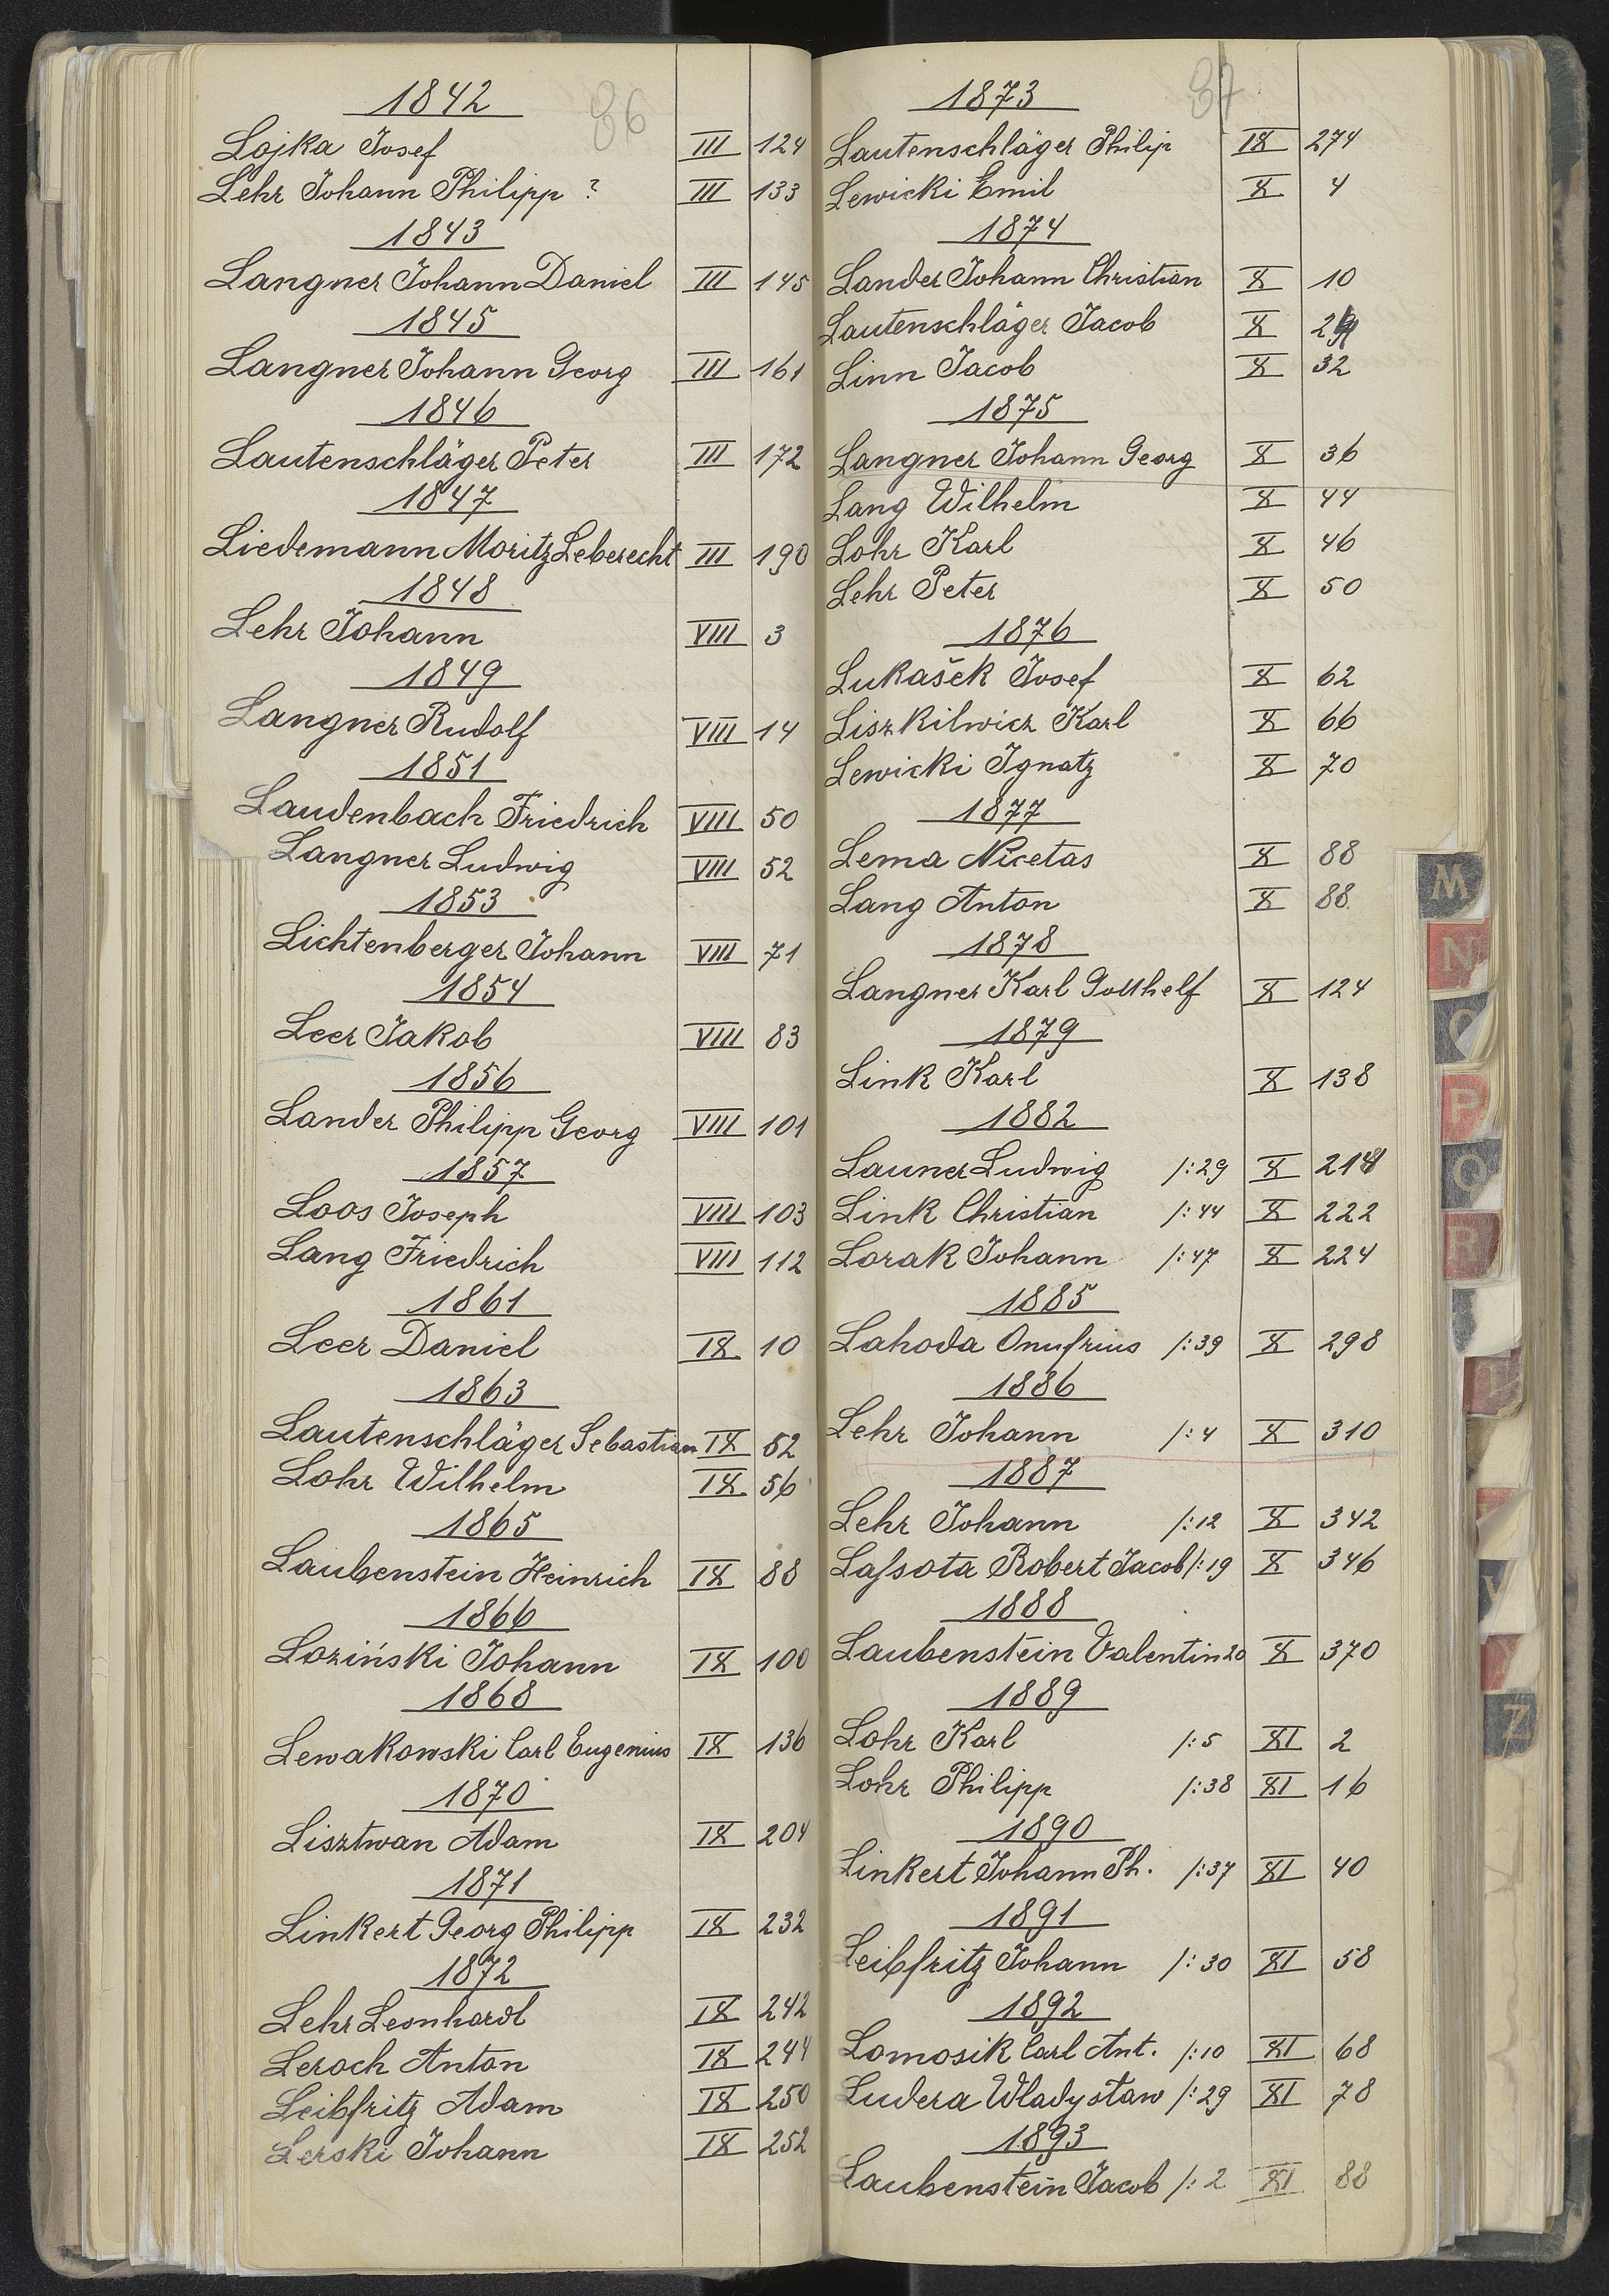 1842 86
Lojka Josef III 124
Lehr Johann Philipp ? III 133
1843
Langner Johann Daniel III 145
1845
Langner Johann Georg III 161
1846
Lautenschläger Peter III 172
1847
Liedemann Moritz Leberecht III 190
1848
Lehr Johann VIII 3
1849
Langner Rudolf VIII 14
1851
Laudenbach Friedrich VIII 50
Langner Ludwig VIII 52
1853
Lichtenberger Johann VIII 71
1854
Leer Jakob VIII 83
1856
Lander Philipp Georg VIII 101
1857
Loos Joseph VIII 103
Lang Friedrich VIII 112
1861
Leer Daniel IX 10
1863
Lautenschläger Sebastian IX 52
Lohr Wilhelm IX 56
1865
Laubenstein Heinrich IX 88
1866
Loziński Johann IX 100
1868
Lewakowski Carl Eugenius IX 136
1870
Lisztwan Adam IX 204
1871
Linkert Georg Philipp IX 232
1872
Lehr Leonhard IX 242
Leroch Anton IX 244
Leibfritz Adam IX 250
Lerski Johann IX 252
1873 87
Lautenschläger Philip IX 274
Lewicki Emil X 4
1874
Lander Johann Christian X 10
Lautenschläger Jacob X
Linn Jacob X 32
1875
Langner Johann Georg X 36
Lang Wilhelm X 44
Lohr Karl X 46
Lehr Peter X 50
1876
Lukašek Josef X 62
Liszkilwicz Karl X 66
Lewicki Ignatz X 70
1877
Lema Nicetas X 88
Lang Anton X 88
1878
Langner Karl Gotthelf X 124
1879
Link Karl X 138
1882
Launer Ludwig /:29 X
Link Christian /:44 X 222
Lorak Johann /:47 X 224
1885
Lahoda Onufrius /:39 X 298
1886
Lehr Johann /:4 X 310
1887
Lehr Johann /:12 X 342
Laſsota Robert Jacob /:19 X 346
1888
Laubenstein Valentin 20 X 370
1889
Lohr Karl /:5 XI 2
Lohr Philipp /:38 XI 16
1890
Linkert Johann Ph. /:37 XI 40
1891
Leibfritz Johann /:30 XI 58
1892
Lomosik Carl Ant. /:10 XI 68
Ludera Władysław /:29 XI 78
1893
Laubenstein Jacob /:2 XI 88
M
N
O
P
Q
R
Z